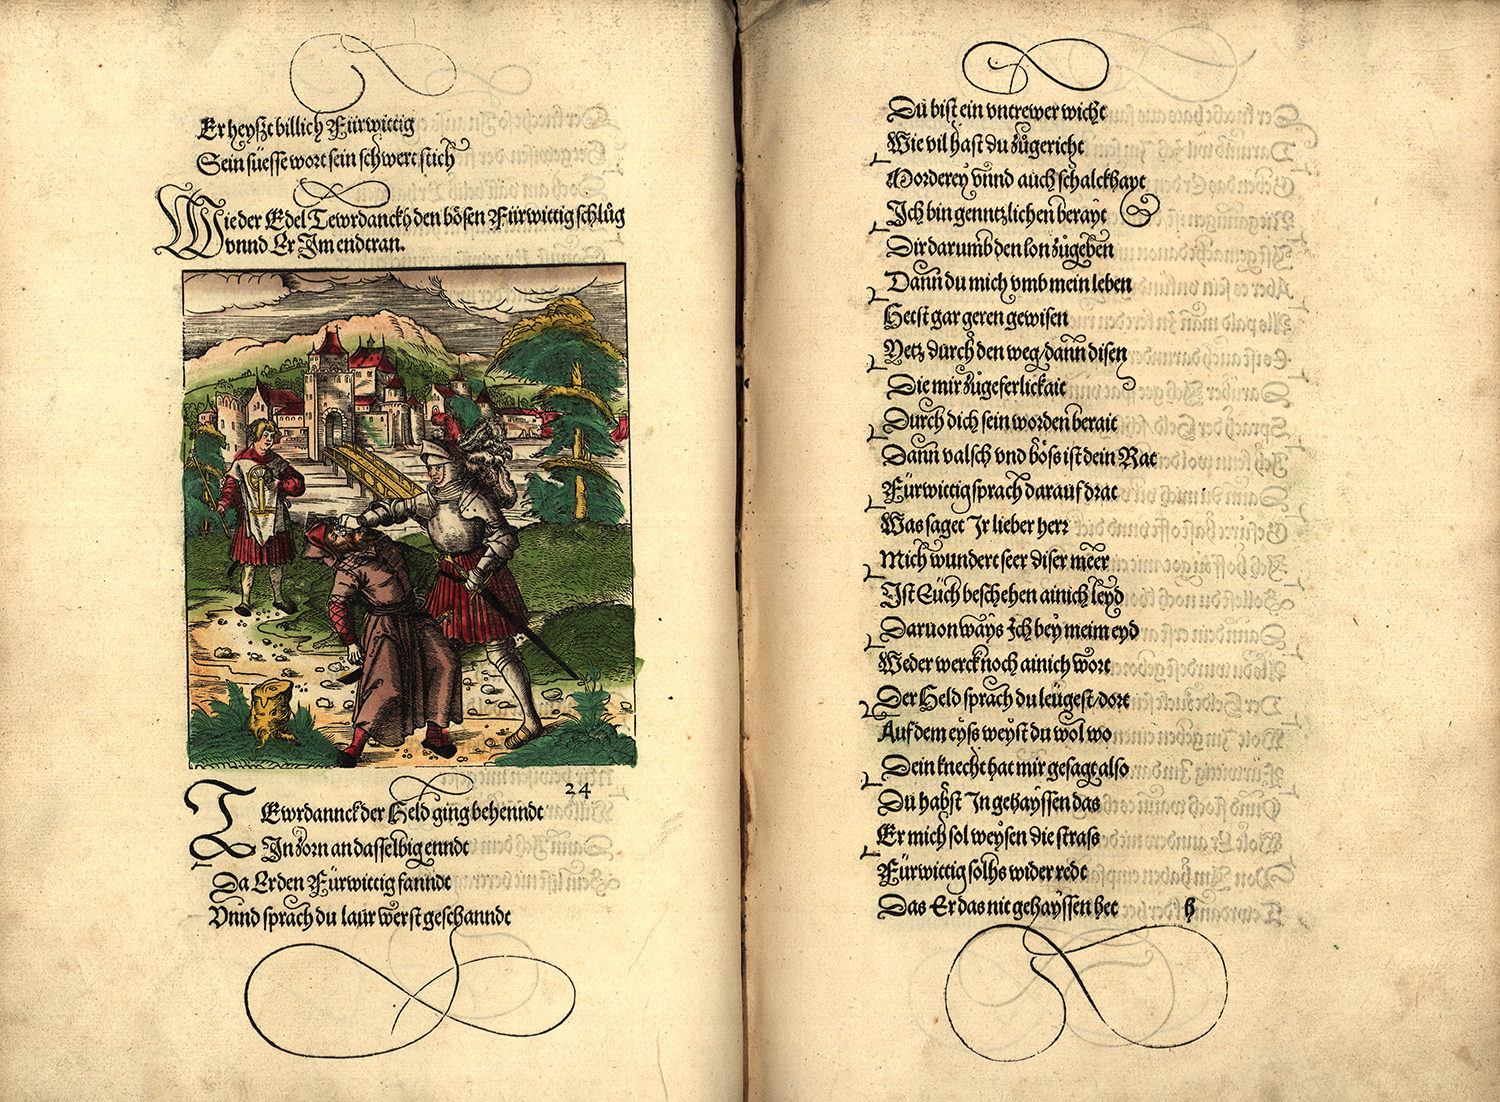 Er heyszt billich Fürwittig
Sein süesse wort sein schwert stich
Wie der Edel Tewrdanckh den bösen Fürwittig schlůg
vnnd Er Im endtran.
24
TEwrdannck der Held ging behenndt
In zorn an dasselbig enndt
Da Er den Fürwittig fanndt
Vnnd sprach du laur werst geschanndt
Du bist ein vntrewer wicht
Wie vil hast du zůgericht
Morderey vnnd auch schalckhayt
Ich bin genntzlichen berayt
Dir darumb den lon zůgeben
Dann du mich vmb mein leben
Hetst gar geren gewisen
Yetz durch den weg/dann disen
Die mir zůgeferlickait
Durch dich sein worden berait
Dann valsch vnd böss ist dein Rat
Fürwittig sprach darauf drat
Was saget Ir lieber herr
Mich wundert seer diser meer
Ist Euch beschehen ainich leyd
Daruon ways Ich bey meim eyd
Weder werck noch ainich wort
Der Held sprach du leügest/dort
Auf dem eyss weyst du wol wo
Dein knecht hat mir gesagt also
Du habst In gehayssen das
Er mich sol weysen die strass
Fürwittig solhs wider redt
Das Er das nit gehayssen het
h